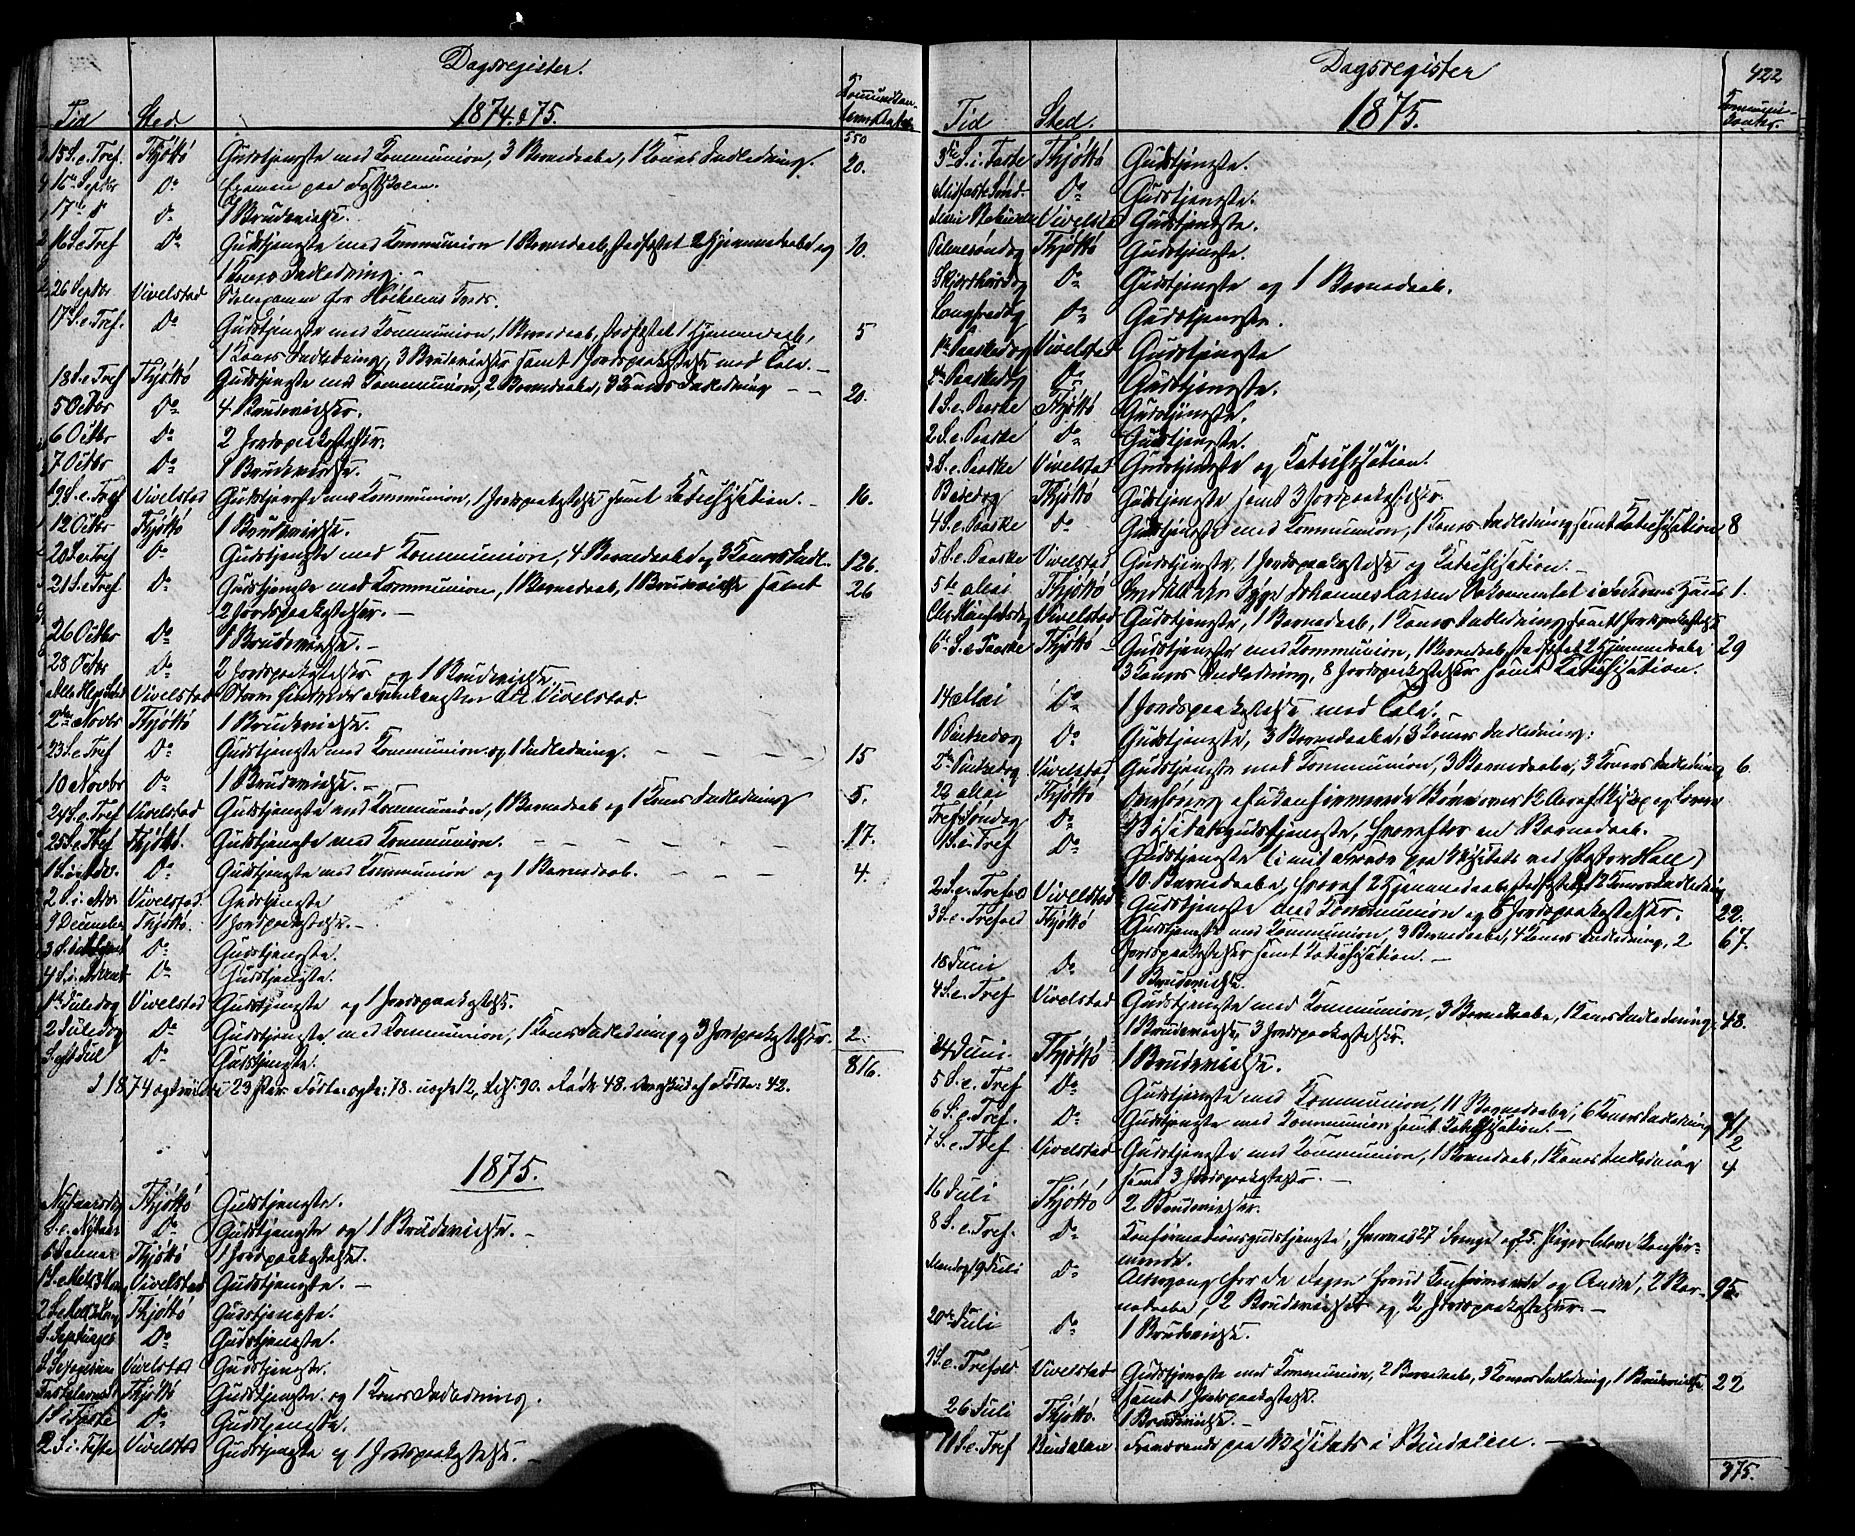 Dagsregister.
1874 & 75.
Tid Sted
550
15 S. e. Tref. Thjøttø Gudstjeneste med Communion, 3 Barnedaabe, 1 Kones Indledning. 20.
16 Septbr Do Examen paa Fastskolen.
17 Do 1 Brudevielse.
16 S. e. Tref Do Gudstjeneste med Communion 1 Barnedaab, stadfæstet 2 Hjemmedaabe og 10.
1 Kones Indledning.
26 Septbr Vivelstad
17 S. e. Tref. Do Gudstjeneste med Communion, 1 Barnedaab, stadfæstet 1 Hjemmedaab, 5
1 Kones Indledning, 3 Brudevielser samt 1 Jordpaakastelse med Tale. -
18 S. e. Tref Thjøttø Gudstjeneste med Communion, 2 Barnedaabe, 3 Koners Indledning - - 20.
5 Octbr Do 4 Brudevielser.
6 Octbr Do 2 Jordpaakastelser.
7 Octbr Do 1 Brudevielse.
19 S. e. Tref Vivelstad Gudstjeneste med Communion, 1 Jordpaakastelse samt Katechisation. - 16.
12 Octbr Thjøttø 1 Brudevielse.
20 S. e. Tref Do Gudstjeneste med Communion, 4 Barnedaabe og 3 Koners Indl. 126.
21 S. e. Tref Do Gudstjeneste med Communion, 1 Barnedaab, 1 Brudevielse samt 26
2 Jordpaakastelser. -
26 Octbr Do 1 Brudevielse.
28 Octbr Do 2 Jordpaakastelser og 1 Brudevielse.
Vivelstad Storm hindrede Vivelstad.
2den Novbr Thjøttø 1 Brudevielse.
23 S. e. Tref Do Gudstjeneste med Communion og 1 Indledning. - - - - 15
10 Novbr Do 1 Brudevielse. -
24 S. e. Tref Vivelstad Gudstjeneste med Communion, 1 Barnedaab og 1 Kones Indledning 5.
25 S. e. Tref Thjøttø. Gudstjeneste med Communion. - - - - - - 17.
1 S. i Adv. Do Gudstjeneste med Communion og 1 Barnedaab. - - - 4.
2 S. i Adv. Vivelstad. Gudstjeneste
9 December Thjøttø. 1 Jordpaakastelse. -
3 S. i Advent Do Gudstjeneste.
4 S. i Advent Do Gudstjeneste.
1ste Juledag Vivelstad Gudstjeneste og 1 Jordpaakastelse.
2 Juledag Do Gudstjeneste med Communion, 1 Kones Indledning og 3 Jordpaakastelser. 2.
S. e. Jul Do Gudstjeneste. 816.
I 1874 ægteviede 23 Par. Fødte: ægte: 78. uægte 12, tils: 90. Døde 48. Overskud af Fødte: 42.
1875.
Nytaarsdag Thjøttø Gudstjeneste.
S. e. Nytaar Do Gudstjeneste og 1 Brudevielse. -
6 Februar Thjøttø 1 Jordpaakastelse.
Vivelstad Gudstjeneste. -
Thjøttø Gudstjeneste.
Do Gudstjeneste.
Vivelstad Gudstjeneste.
Fastelavns S. Thjøttø Gudstjeneste og 1 Kones Indledning.
1 S. i Faste Do Gudstjeneste.
2 S. i. Faste Vivelstad Gudstjeneste og 1 Jordpaakastelse. -
Dagsregister 422
Tid Sted. 1875.
3die S. i. Faste Thjøttø Gudstjeneste.
Midfaste Sønd. Do Gudstjeneste.
Vivelstad Gudstjeneste.
Palmesøndag Thjøttø Gudstjeneste.
Skjærthorsdag Do Gudstjeneste og 1 Barnedaab.
Langfredag Do Gudstjeneste.
1ste Paaskedag Vivelstad Gudstjeneste
2den Paaskedag Do Gudstjeneste.
1 S. e. Paaske Thjøttø Gudstjeneste.
2 S. e. Paaske Do Gudstjeneste.
3 S. e. Paaske Vivelstad Gudstjeneste og Katechisation.
Bededag Thjøttø Gudstjeneste samt 3 Jordpaakastelser
4 S. e. Paaske Do Gudstjeneste med Communion, 1 Kones Indledning samt Katechisation 8
5 S. e. Paaske Vivelstad Gudstjeneste, 1 Jordpaakastelse og Katechisation. -
5te Mai Thjøttø Syge Johannes Larsen 1.
Chr. Himmelfartsdag Vivelstad Gudstjeneste, 1 Barnedaab, 1 Kones Indledning samt 1 Jordpaakastelse
6te S. e. Paaske Thjøttø - Gudstjeneste med Communion, 1 Barnedaab stadfæstet 2 Hjemmedaabe 29
3 Koners Indledning, 8 Jordpaakastelser samt Katechisation.
14 Mai Do 1 Jordpaakastelse med Tale.
1 Pintsedag Do Gudstjeneste, 3 Barnedaabe, 3 Koners Indledning.
2den Pintsedag Vivelstad Gudstjeneste med Communion, 3 Barnedaabe, 3 Koners Indledning 6.
22 Mai Thjøttø
Tref Søndag Do Visitatsgudstjeneste, hvorefter en Barnedaab.
1 S. e. Tref Do Gudstjeneste (i mit Fravær paa Visitats ved Pastor Hall)
10 Barnedaabe, hvoraf 2 Hjemmedaabe stadfæstet, 12 Koners Indledning
2 S. e. Trefold Vivelstad Gudstjeneste med Communion og 6 Jordpaakastelser. 22.
3 S. e. Trefold Thjøttø Gudstjeneste med Communion, 3 Barnedaabe, 4 Koners Indledning, 2 67.
Jordpaakastelser samt Katechisation. -
18 Juni Do 1 Brudevielse.
4 S. e. Tref Vivelstad Gudstjeneste med Communion, 3 Barnedaabe, 1 Kones Indledning, 48.
1 Brudevielse, 3 Jordpaakastelser.
24 Juni. Thjøttø 1 Brudevielse.
5 S. e. Tref Do Gudstjeneste med Communion, 11 Barnedaabe, 6 Koners Indledning 71
6 S. e. Tref. Do Gudstjeneste med Communion samt Katechisation. - 2
7 S. e. Tref Vivelstad Gudstjeneste med Communion, 1 Barnedaab, 1 Kones Indledning 4
samt 3 Jordpaakastelser. -
16 Juli Thjøttø 2 Brudevielser.
8 S. e. Tref. Do Konfirmationsgudstjeneste, hvorved 27 Drenge og 25 Piger bleve konfir-
merede.
Mandag 19 Juli Do Altergang for de Dagen forud Konfirmerede og Andre, 2 Bar- 95.
nedaabe, 2 Brudevielser og 2 Jordpaakastelser. -
20de Juli Do 1 Brudevielse.
9 S. e. Trefold. Vivelstad Gudstjeneste med Communion, 2 Barnedaabe, 3 Koners Indledning, 1 Brudevielse 22
samt 1 Jordpaakastelse.
26 Juli Thjøttø. 1 Brudevielse. -
S. e. Tref Bindalen Fraværende paa Visitats i Bindalen. -
375.